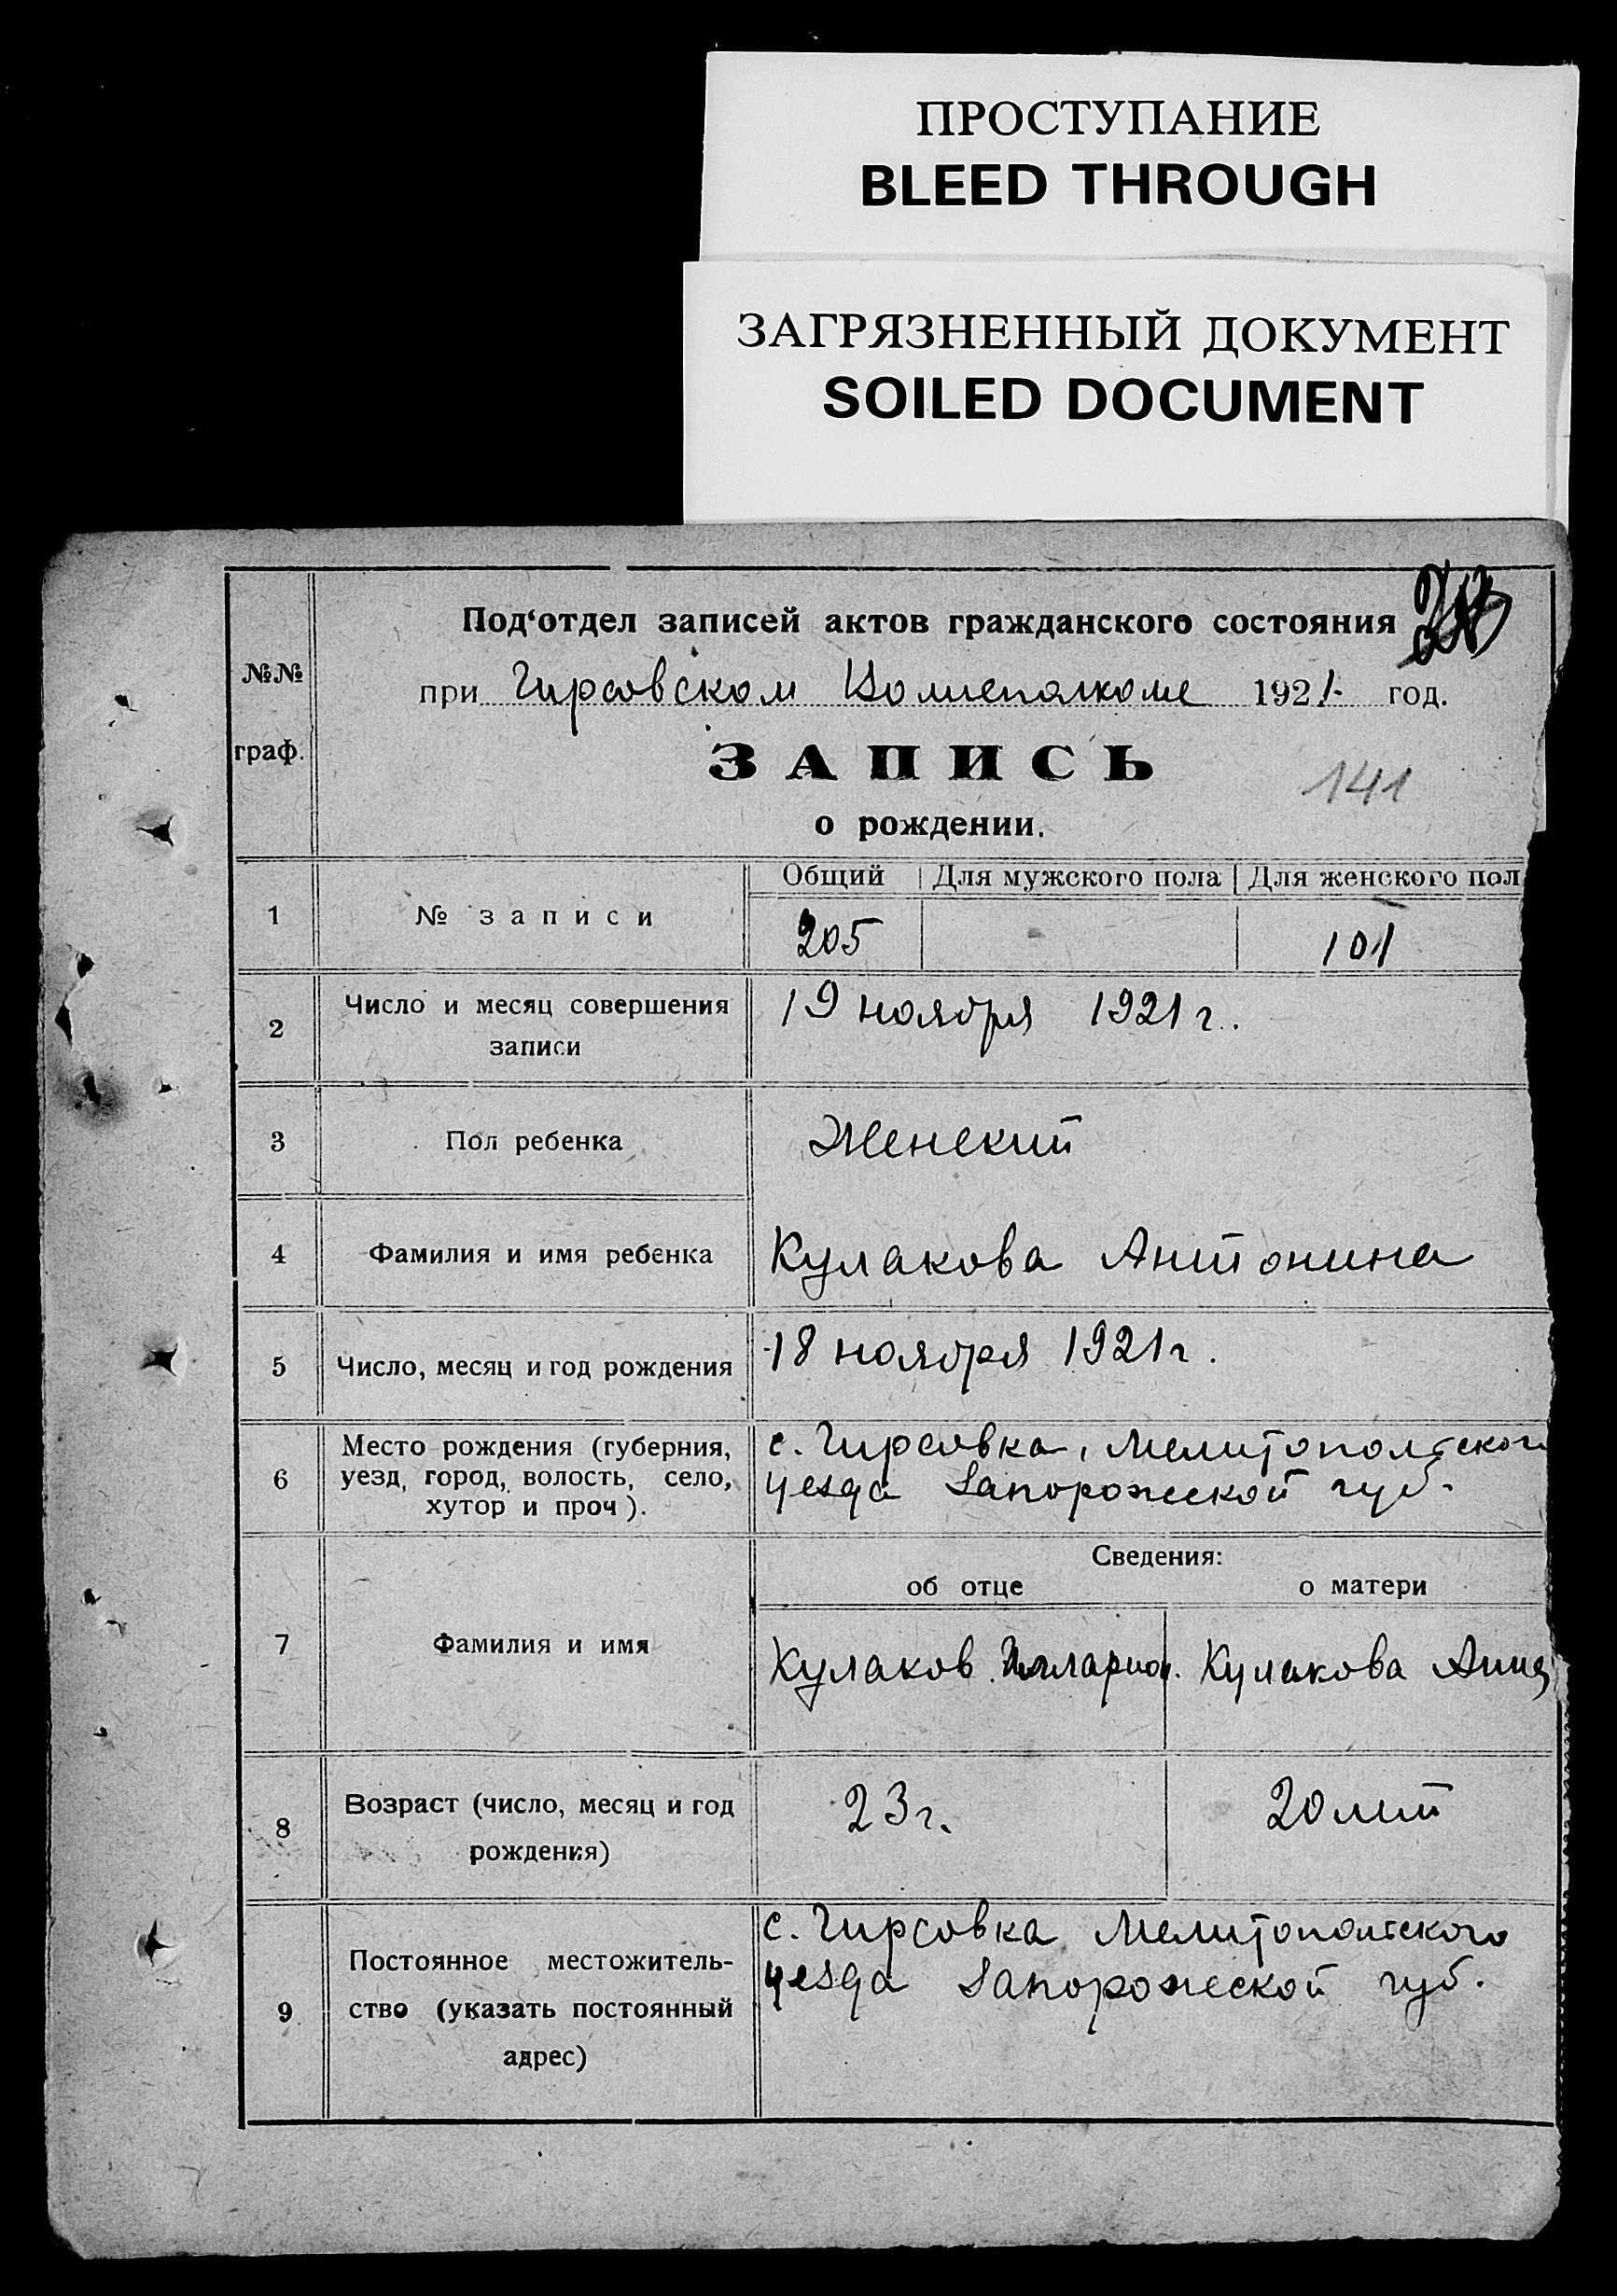 ПРОСТУПАНИЕ
BLEED THROUGH
ЗАГРЯЗНЕННЫЙ ДОКУМЕНТ
SOILED DOCUMENT
№№
граф.
Под‘отдел записей актов гражданского состояния
при Гирсовском 1921 год.
ЗАПИСЬ
141
о рождении.
Общий Для мужского пола Для женского пол
1 № записи 205 101
2 Число и месяц совершения
записи
19 ноября 1921 г.
3 Пол ребенка Женский
4 Фамилия и имя ребенка Кулакова Антонина
5 Число, месяц и год рождения 18 ноября 1921 г.
6 Место рождения (губерния,
уезд, город, волость, село,
хутор и проч).
с. Гирсовка, Мелитопольского
уезда Запорожской губ.
Сведения:
об отце о матери
7 Фамилия и имя Кулаков Илларион. Кулакова Анна
8 Возраст (число, месяц и год
рождения)
23 г. 20 лет
9 Постоянное местожитель-
ство (указать постоянный
адрес)
с. Гирсовка Мелитопольского
уезда Запорожской губ.